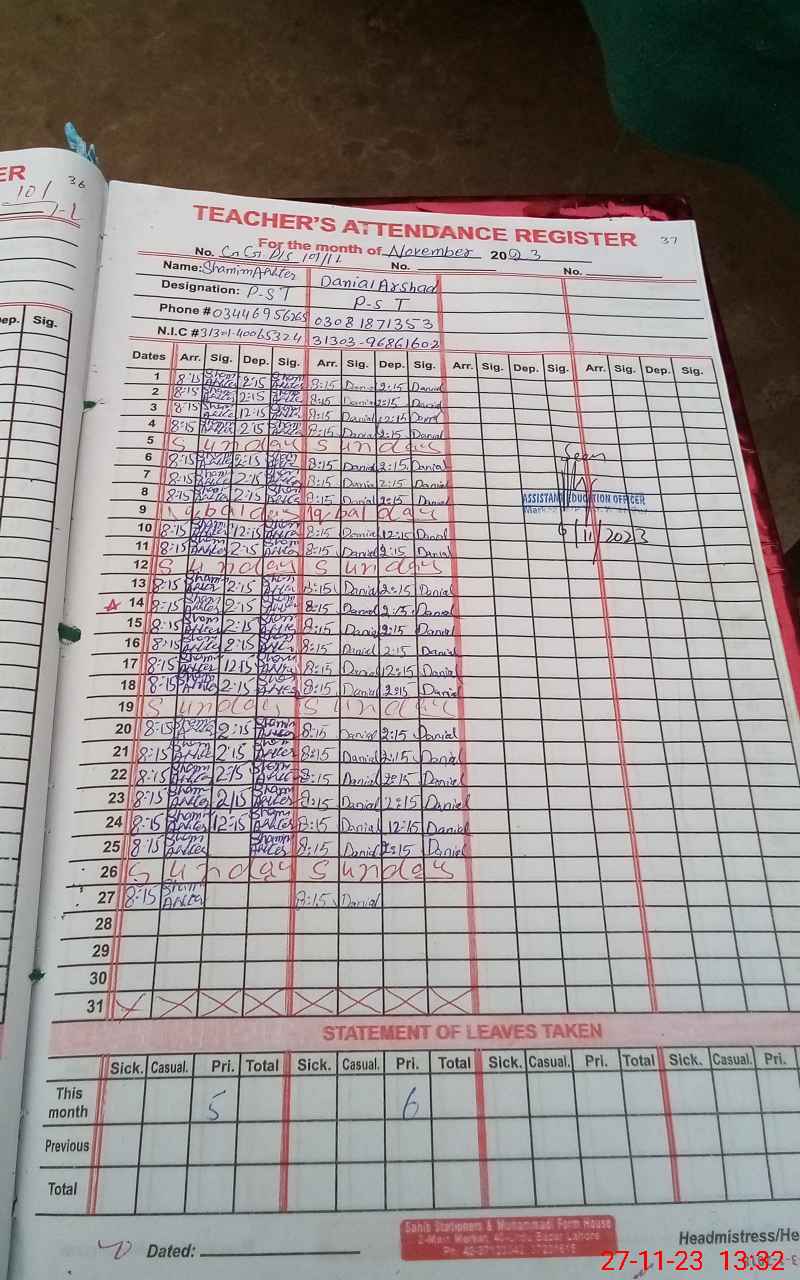 ER
36
101
37
TEACHER'S ATTENDANCE REGISTER
For the month of November 2023
No. G.G.P/S 101/1L No. No.
Name: Shamim Akhter Danial Arshad
Designation: P-S T P-S T
Phone # 03446956265 03081871353
N.I.C # 31303-96861602
Dep. Sig.
Dates Arr. Sig. Dep. Sig. Arr. Sig. Dep. Sig. Arr. Sig. Dep. Sig. Arr. Sig. Dep. Sig.
1 8:15 Sham Akhter 2:15 Sham Akhter 8:15 Danial 2:15 Danial
2 8:15 Sham Akhter 2:15 Sham Akhter 8:15 Danial 2:15 Danial
3 8:15 Sham Akhter 12:15 Sham Akhter 8:15 Danial 12:15 Danial
4 8:15 Sham Akhter 2:15 Sham Akhter 8:15 Danial 2:15 Danial
5 Sunday Sunday
6 8:15 Sham Akhter 2:15 Sham Akhter 8:15 Danial 2:15 Danial
7 8:15 Sham Akhter 2:15 Sham Akhter 8:15 Danial 2:15 Danial
8 8:15 Sham Akhter 2:15 Sham Akhter 8:15 Danial 2:15 Danial
9 Iqbal day Iqbal day
10 8:15 Sham Akhter 12:15 Sham Akhter 8:15 Danial 12:15 Danial
11 8:15 Sham Akhter 2:15 Sham Akhter 8:15 Danial 2:15 Danial
12 Sunday Sunday
13 8:15 Sham Akhter 2:15 Sham Akhter 8:15 Danial 2:15 Danial
14 8:15 Sham Akhter 2:15 Sham Akhter 8:15 Danial 2:15 Danial
15 8:15 Sham Akhter 2:15 Sham Akhter 8:15 Danial 2:15 Danial
16 8:15 Sham Akhter 2:15 Sham Akhter 8:15 Danial 2:15 Danial
17 8:15 Sham Akhter 12:15 Sham Akhter 8:15 Danial 12:15 Danial
18 8:15 Sham Akhter 2:15 Sham Akhter 8:15 Danial 2:15 Danial
19 Sunday Sunday
20 8:15 Sham Akhter 2:15 Sham Akhter 8:15 Danial 2:15 Danial
21 8:15 Sham Akhter 2:15 Sham Akhter 8:15 Danial 2:15 Danial
22 8:15 Sham Akhter 2:15 Sham Akhter 8:15 Danial 2:15 Danial
23 8:15 Sham Akhter 2:15 Sham Akhter 8:15 Danial 2:15 Danial
24 8:15 Sham Akhter 12:15 Sham Akhter 8:15 Danial 12:15 Danial
25 8:15 Sham Akhter Sham Akhter 8:15 Danial 2:15 Danial
26 Sunday Sunday
27 8:15 Sham Akhter 8:15 Danial
28
29
30
31
Seen
ASSISTANT EDUCATION OFFICER
6/11/2023
STATEMENT OF LEAVES TAKEN
Sick. Casual. Pri. Total Sick. Casual. Pri. Total Sick. Casual. Pri. Total Sick. Casual. Pri.
This month 5 6
Previous
Total
Dated:
Sanis Stationers & Muhammadi Form House
2-Main Market, 40-Urdu Bazar Lahore
Headmistress/He
27-11-23 13:32